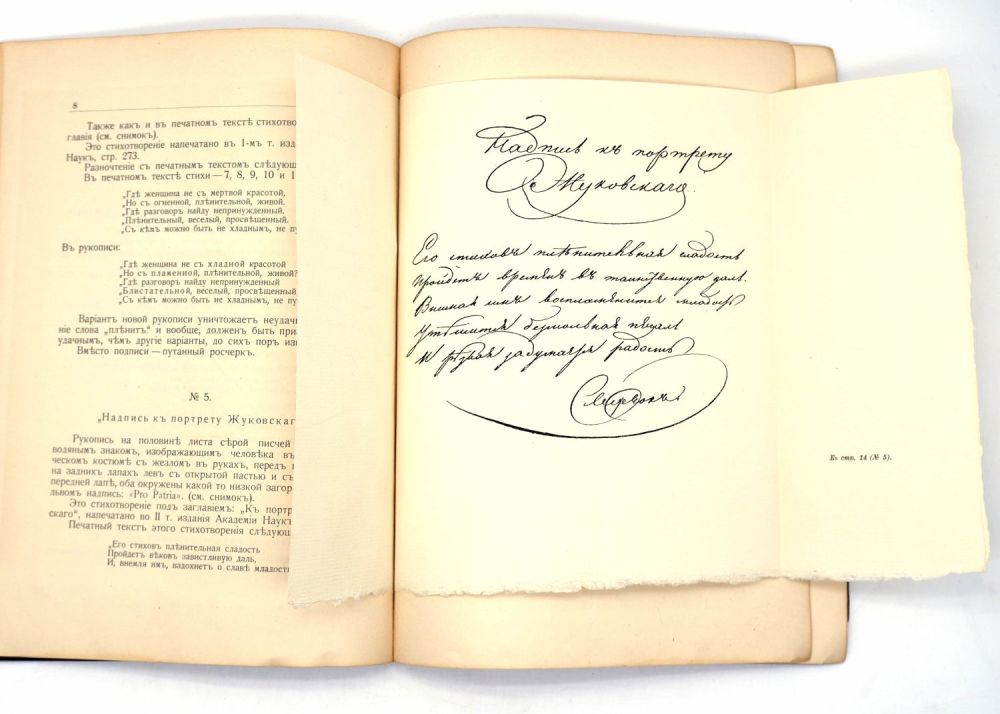 8
Также какъ и въ печатномъ текстѣ стихотво
главія (см. снимокъ).
Это стихотвореніе напечатано въ I-мъ т. изд
Наукъ, стр. 273.
Разночтеніе съ печатнымъ текстомъ слѣдующ
Въ печатномъ текстѣ стихи — 7, 8, 9, 10 и 1
„Гдѣ женщина не съ мертвой красотой,
„Но съ огненной, плѣнительной, живой.
„Гдѣ разговоръ найду непринужденный.
„Плѣнительный, веселый, просвѣщенный.
„Съ кѣмъ можно быть не хладнымъ, не пу
Въ рукописи:
„Гдѣ женщина не съ хладной красотой
„Но съ пламенной, плѣнительной, живой?
„Гдѣ разговоръ найду непринужденный
„Блистательной, веселый, просвѣщенный
„Съ кѣмъ можно быть не хладнымъ, не пу
Варіантъ новой рукописи уничтожаетъ неудачн
ніе слова „плѣнитъ“ и вообще, долженъ быть приз
удачнымъ, чѣмъ другіе варіанты, до сихъ поръ изв
Вмѣсто подписи — путанный росчеркъ.
№ 5.
„Надпись къ портрету Жуковскаг
Рукопись на половинѣ листа сѣрой писчей
водянымъ знакомъ, изображающимъ человѣка въ
ческомъ костюмѣ съ жезломъ въ рукахъ, передъ
на заднихъ лапахъ левъ съ открытой пастью и съ
передней лапѣ, оба окружены какой то низкой загор
львомъ надпись: «Pro Patria». (см. снимокъ).
Это стихотвореніе подъ заглавіемъ: „Къ портр
скаго“, напечатано во II т. изданія Академіи Наукъ
Печатный текстъ этого стихотворенія слѣдующ
„Его стиховъ плѣнительная сладость
Пройдетъ вѣковъ завистливую даль,
И, внемля имъ, вздохнетъ о славѣ младость
Надпись къ портрету
Жуковскаго.
Его стиховъ плѣнительная сладость
Пройдетъ временъ въ таинственную даль.
имъ воспламенится младость
Утѣшится безмолвная печаль
И рѣзвая задумается радость
Къ стр. 14 (№ 5).